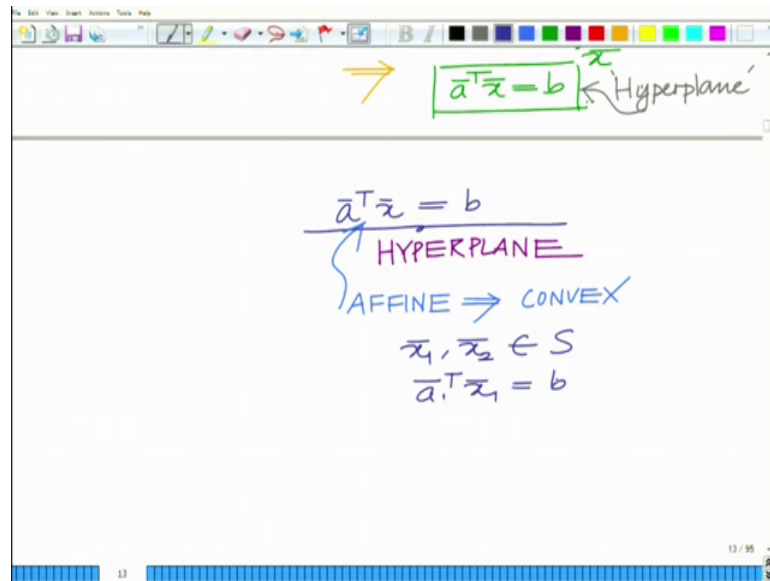 File Edit View Insert Actions Tools Help
B I
x̅
⇒ a̅ᵀx̅ = b 'Hyperplane'
a̅ᵀx̅ = b
HYPERPLANE
AFFINE ⇒ CONVEX
x̅₁, x̅₂ ∈ S
a̅ᵀx̅₁ = b
13 / 95
13